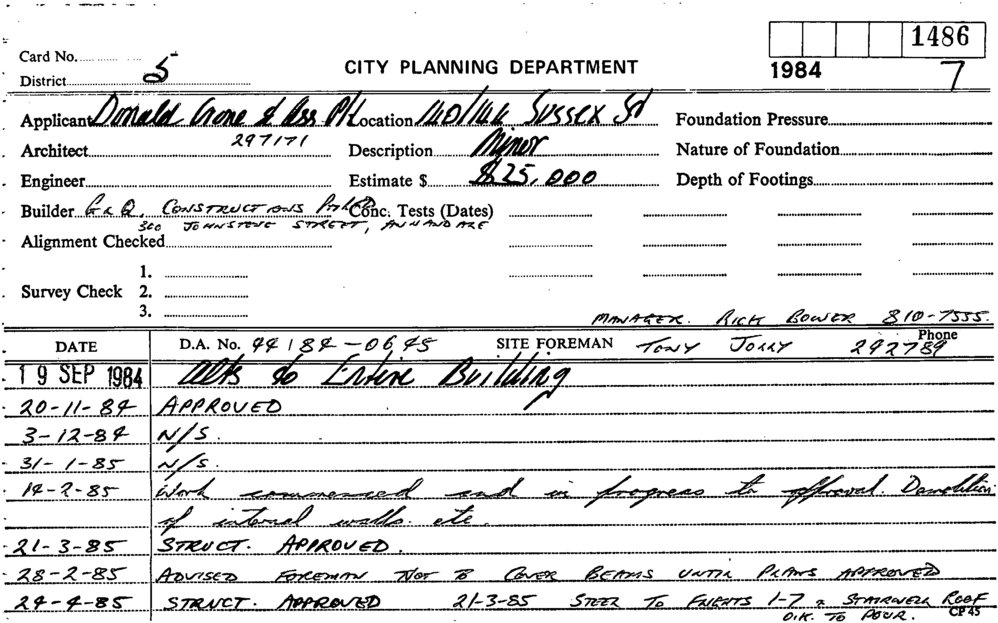 1486
Card No.
CITY PLANNING DEPARTMENT
1984 7
District 5
Applicant Donald Crone & Ass P/L Location 140/146 Sussex St Foundation Pressure
Architect 297171 Description Minor Nature of Foundation
Engineer Estimate $ $25,000 Depth of Footings
Builder G & Q. CONSTRUCTIONS P/L Conc. Tests (Dates)
300 JOHNSTONE STREET, ANNANDALE
Alignment Checked
1.
Survey Check 2.
3.
MANAGER. RICK BOWER 810-7555.
DATE D.A. No. 44 84-0645 SITE FOREMAN TONY JORRY Phone 292789
19 SEP 1984 Alts to Entire Building
20-11-84 APPROVED
3-12-84 N/S.
31-1-85 N/S.
14-2-85 Work commenced and in progress to approval. Demolition
of internal walls. etc.
21-3-85 STRUCT. APPROVED.
28-2-85 ADVISED FOREMAN NOT TO COVER BEAMS UNTIL PLANS APPROVED
24-4-85 STRUCT. APPROVED 21-3-85 STEEL TO 1-7 & STAIRWELL ROOF
O.K. TO POUR. CP 45